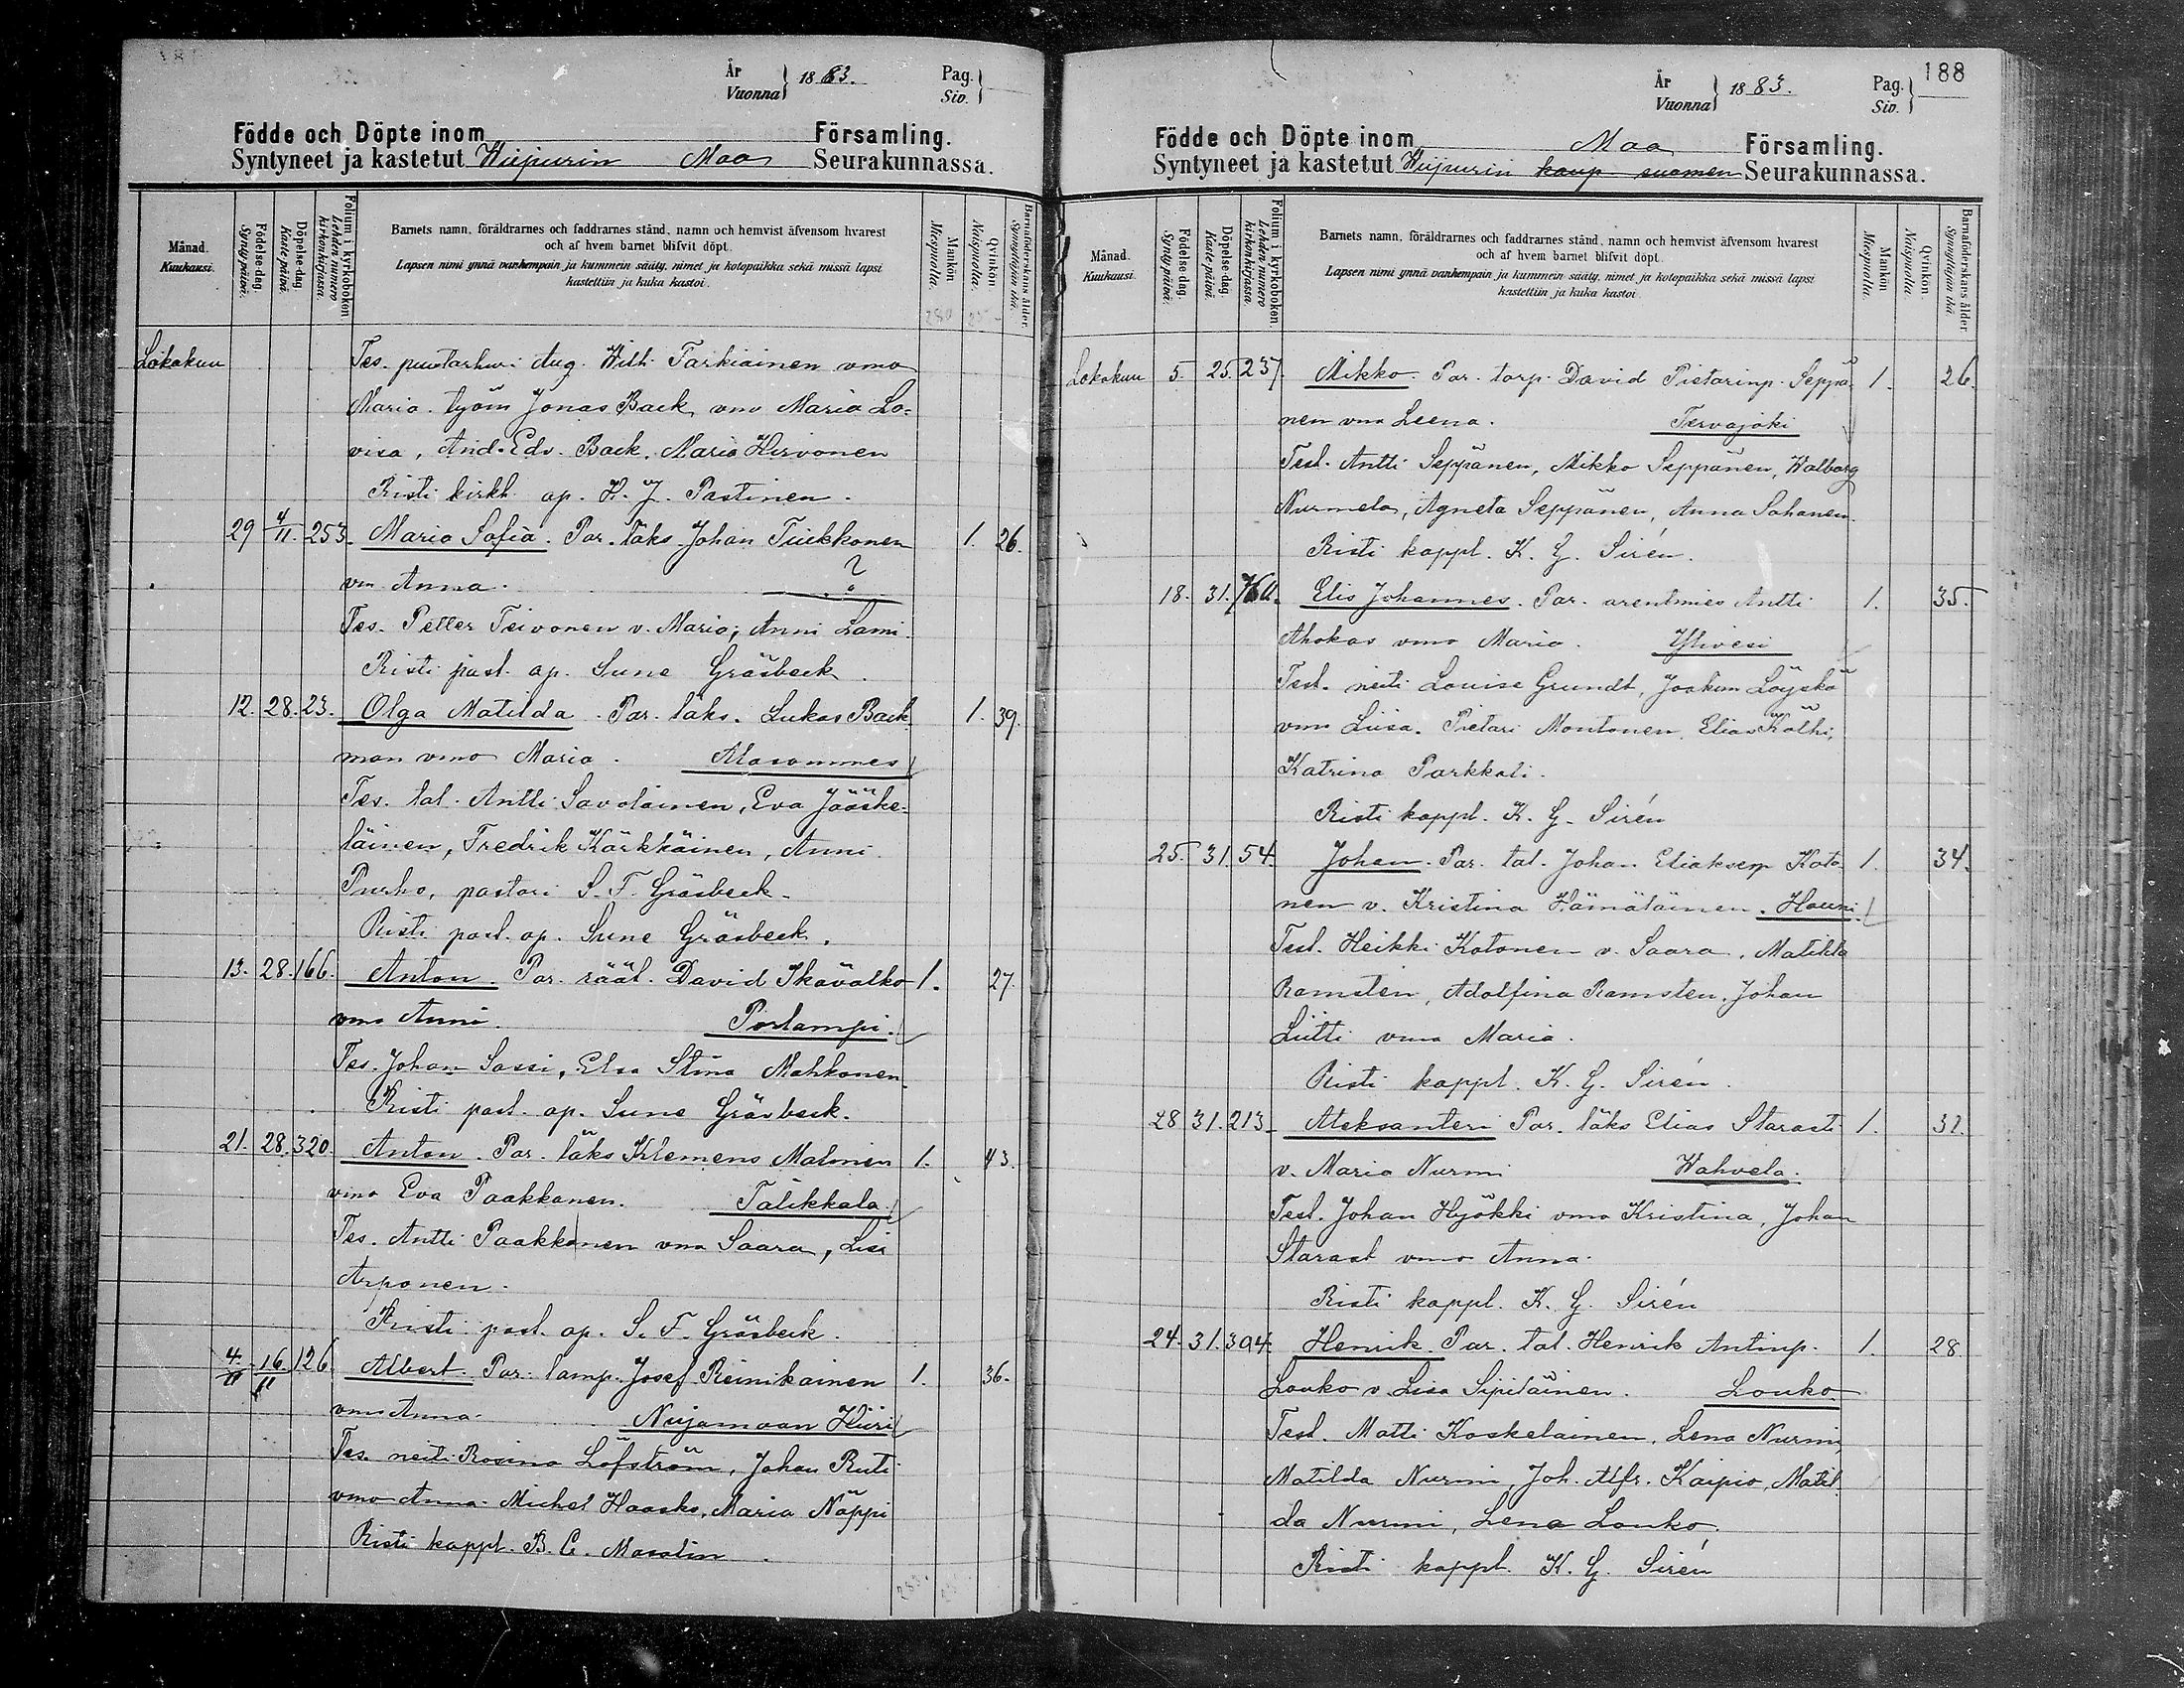 År Vuonna } 1883. Pag. Siv. }
Födde och Döpte inom Församling.
Syntyneet ja kastetut Wiipurin Maa Seurakunnassa.
Månad. Kuukausi.
Födelse-dag. Synty päivä.
Döpelse-dag. Kaste päivä.
Folium i kyrkoboken. Lehden numero kirkonkirjassa.
Barnets namn, föräldrarnes och faddrarnes stånd, namn och hemvist äfvensom hvarest
och af hvem barnet blifvit döpt.
Lapsen nimi ynnä vanhempain ja kummein sääty, nimet ja kotopaikka sekä missä lapsi
kastettiin ja kuka kastoi.
Mankön Miespuolta.
Qvinkön Naispuolta.
Barnaföderskans ålder. Synnyttäjän ikä.
Lokakuu Tes. puutarhur. Aug. Wilh. Tarkiainen vmo
Maria. työm Jonas Back vmo Maria Lo-
visa, And. Edv. Back. Maria Hirvonen
Risti kirkh. ap. K. J. Pastinen.
29 4/11. 253. Maria Sofia. Par. läks. Johan Tiukkonen 1. 26.
vm Anna. ? "
Tes. Petter Teivonen v. Maria; Anni Lami.
Risti past. ap. Sune Gräsbeck.
12. 28. 23. Olga Matilda. Par. läks. Lukas Back 1. 39.
man vmo Maria. Alasommes
Tes. tal. Antti Savolainen, Eva Jääske-
läinen, Fredrik Kärkkäinen, Anni
Purho, pastori S. F. Gräsbeck.
Risti past. ap. Sune Gräsbeck.
13. 28. 166. Anton. Par. räät. David Ikävalko 1. 27.
vmo Anni. Porlampi.
Tes. Johan Sassi, Elsa Stina Mahkonen.
Risti past. ap. Sune Gräsbeck.
21. 28. 320. Anton. Par. läks Klemens Malinen 1. 43.
vmo Eva Paakkanen. Talikkala.
Tes. Antti Paakkonen vmo Saara, Lisa
Arponen.
Risti past. ap. S. F. Gräsbeck.
4/11 16/11 126 Albert. Par. lamp. Josef Reinikainen 1. 36.
vmo Anna. Nuijamaan Hiiri
Tes. neiti Rosina Löfström, Johan Ruti
vmo Anna. Michel Haasko, Maria Näppi
Risti kappl. B. C. Masalin.
188
År Vuonna } 1883. Pag. Siv. }
Födde och Döpte inom Maa Församling.
Syntyneet ja kastetut Wiipurin kaup suomen Seurakunnassa.
Månad. Kuukausi.
Födelse-dag. Synty päivä.
Döpelse-dag. Kaste päivä.
Folium i kyrkoboken. Lehden numero kirkonkirjassa.
Barnets namn, föräldrarnes och faddrarnes stånd, namn och hemvist äfvensom hvarest
och af hvem barnet blifvit döpt.
Lapsen nimi ynnä vanhempain ja kummein sääty, nimet ja kotopaikka sekä missä lapsi
kastettiin ja kuka kastoi.
Mankön Miespuolta.
Qvinkön Naispuolta.
Barnaföderskans ålder. Synnyttäjän ikä.
Lokakuu 5. 25. 237. Mikko. Par. torp. David Pietarinp. Seppä 1. 26.
nen vmo Leena. Tervajoki
Test. Antti Seppänen, Mikko Seppänen, Walborg
Nurmela, Agneta Seppänen, Anna Sohanen.
Risti kappl. K. G. Sirén.
18. 31. Elis Johannes. Par. arentmies Antti 1. 35.
Ahokas vmo Maria. Ylivesi
Test. neiti Louise Grundt, Joakim Löyskä
vmo Liisa. Pietari Montonen, Elias Kälhi,
Katrina Parkkali.
Risti kappl. K. G. Sirén
25. 31. 54. Johan. Par. tal. Johan Eliaksenp Koto- 1. 34.
nen v. Kristina Hämäläinen. Hauni.
Test. Heikki Kotonen v. Saara, Matilda
Ramsten, Adolfina Ramsten, Johan
Liitti vmo Maria.
Risti kappl. K. G. Sirén.
28 31. 213. Aleksanteri Par. läks Elias Starast 1. 32.
v. Maria Nurmi Wahvela.
Test. Johan Hyökki vmo Kristina, Johan
Starast vmo Anna.
Risti kappl. K. G. Sirén
24. 31. 394. Henrik. Par. tal. Henrik Antinp. 1. 28
Louko v. Lisa Sipiläinen. Louko
Test. Matti Koskelainen, Lena Nurmi
Matilda Nurmi, Joh. Alfr. Kaipio, Matil
da Nurmi, Lena Louko.
Risti kappl. K. G. Sirén